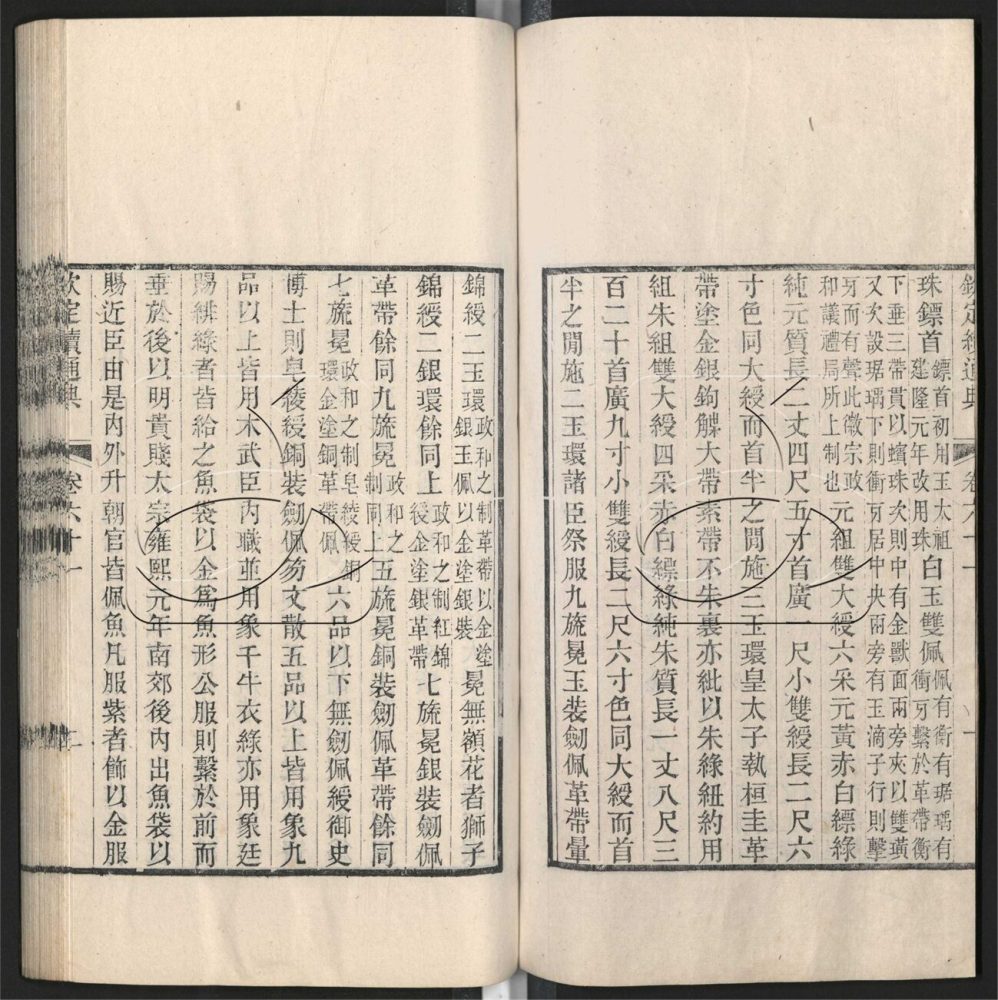 欽定續通典 卷六十一 一
珠鏢首鏢首初用玉太祖建隆元年改用珠白玉雙佩佩有衡有琚瑀有衝牙繫於革帶衡
下垂三帶貫以蠙珠次則中有金獸面兩旁夾以雙璜
又次設琚瑀下則衝牙居中央兩旁有玉滴子行則擊
牙而有聲此徽宗政和議禮局所上制也元組雙大綬六采元黃赤白縹綠
純元質長二丈四尺五寸首廣一尺小雙綬長二尺六
寸色同大綬而首半之閒施三玉環皇太子執桓圭革
帶塗金銀鉤䚢大帶素帶不朱裏亦紕以朱綠紐約用
組朱組雙大綬四采赤白縹綠純朱質長一丈八尺三
百二十首廣九寸小雙綬長二尺六寸色同大綬而首
半之閒施二玉環諸臣祭服九旒冕玉裝劒佩革帶暈
錦綬二玉環政和之制革帶以金塗銀玉佩以金塗銀裝冕無額花者獅子
錦綬二銀環餘同上政和之制紅錦綬金塗銀革帶七旒冕銀裝劒佩
革帶餘同九旒冕政和之制同上五旒冕銅裝劒佩革帶餘同
七旒冕政和之制皂綾綬銅環金塗銅革帶佩六品以下無劒佩綬御史
博士則皁綾綬銅裝劒佩笏文散五品以上皆用象九
品以上皆用木武臣內職並用象千牛衣綠亦用象廷
賜緋綠者皆給之魚袋以金爲魚形公服則繫於前而
垂於後以明貴賤太宗雍熙元年南郊後內出魚袋以
賜近臣由是內外升朝官皆佩魚凡服紫者飾以金服
欽定續通典 卷六十一 二